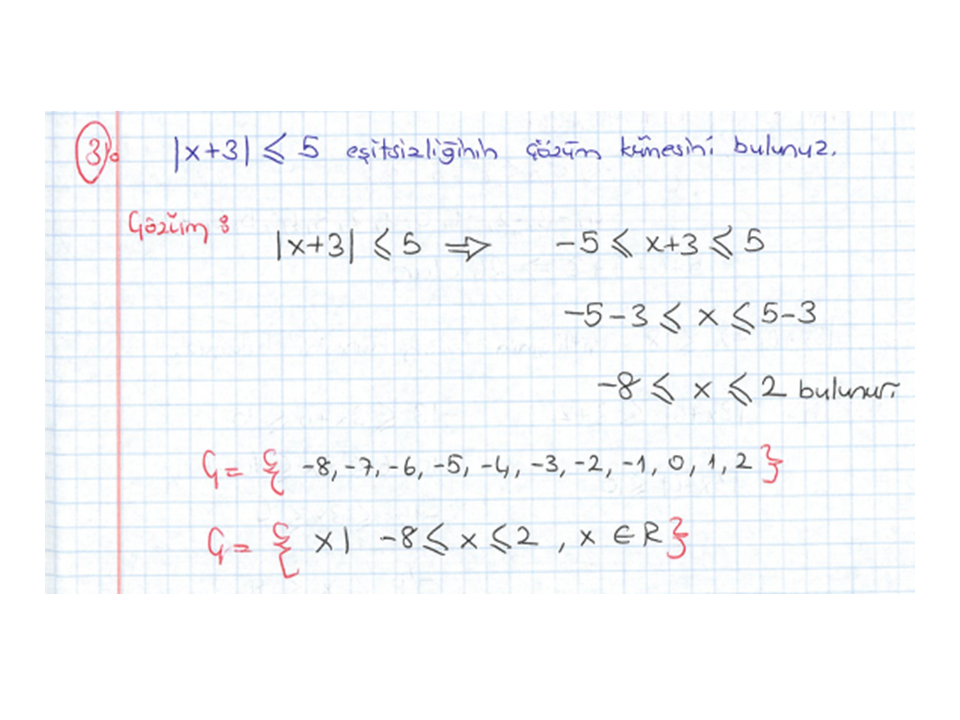 3) |x+3| ⩽ 5 eşitsizliğinin çözüm kümesini bulunuz.
Çözüm : |x+3| ⩽ 5 ⇒ -5 ⩽ x+3 ⩽ 5
-5-3 ⩽ x ⩽ 5-3
-8 ⩽ x ⩽ 2 bulunur.
Ç = { -8, -7, -6, -5, -4, -3, -2, -1, 0, 1, 2 }
Ç = { x | -8 ⩽ x ⩽ 2 , x ∈ R }